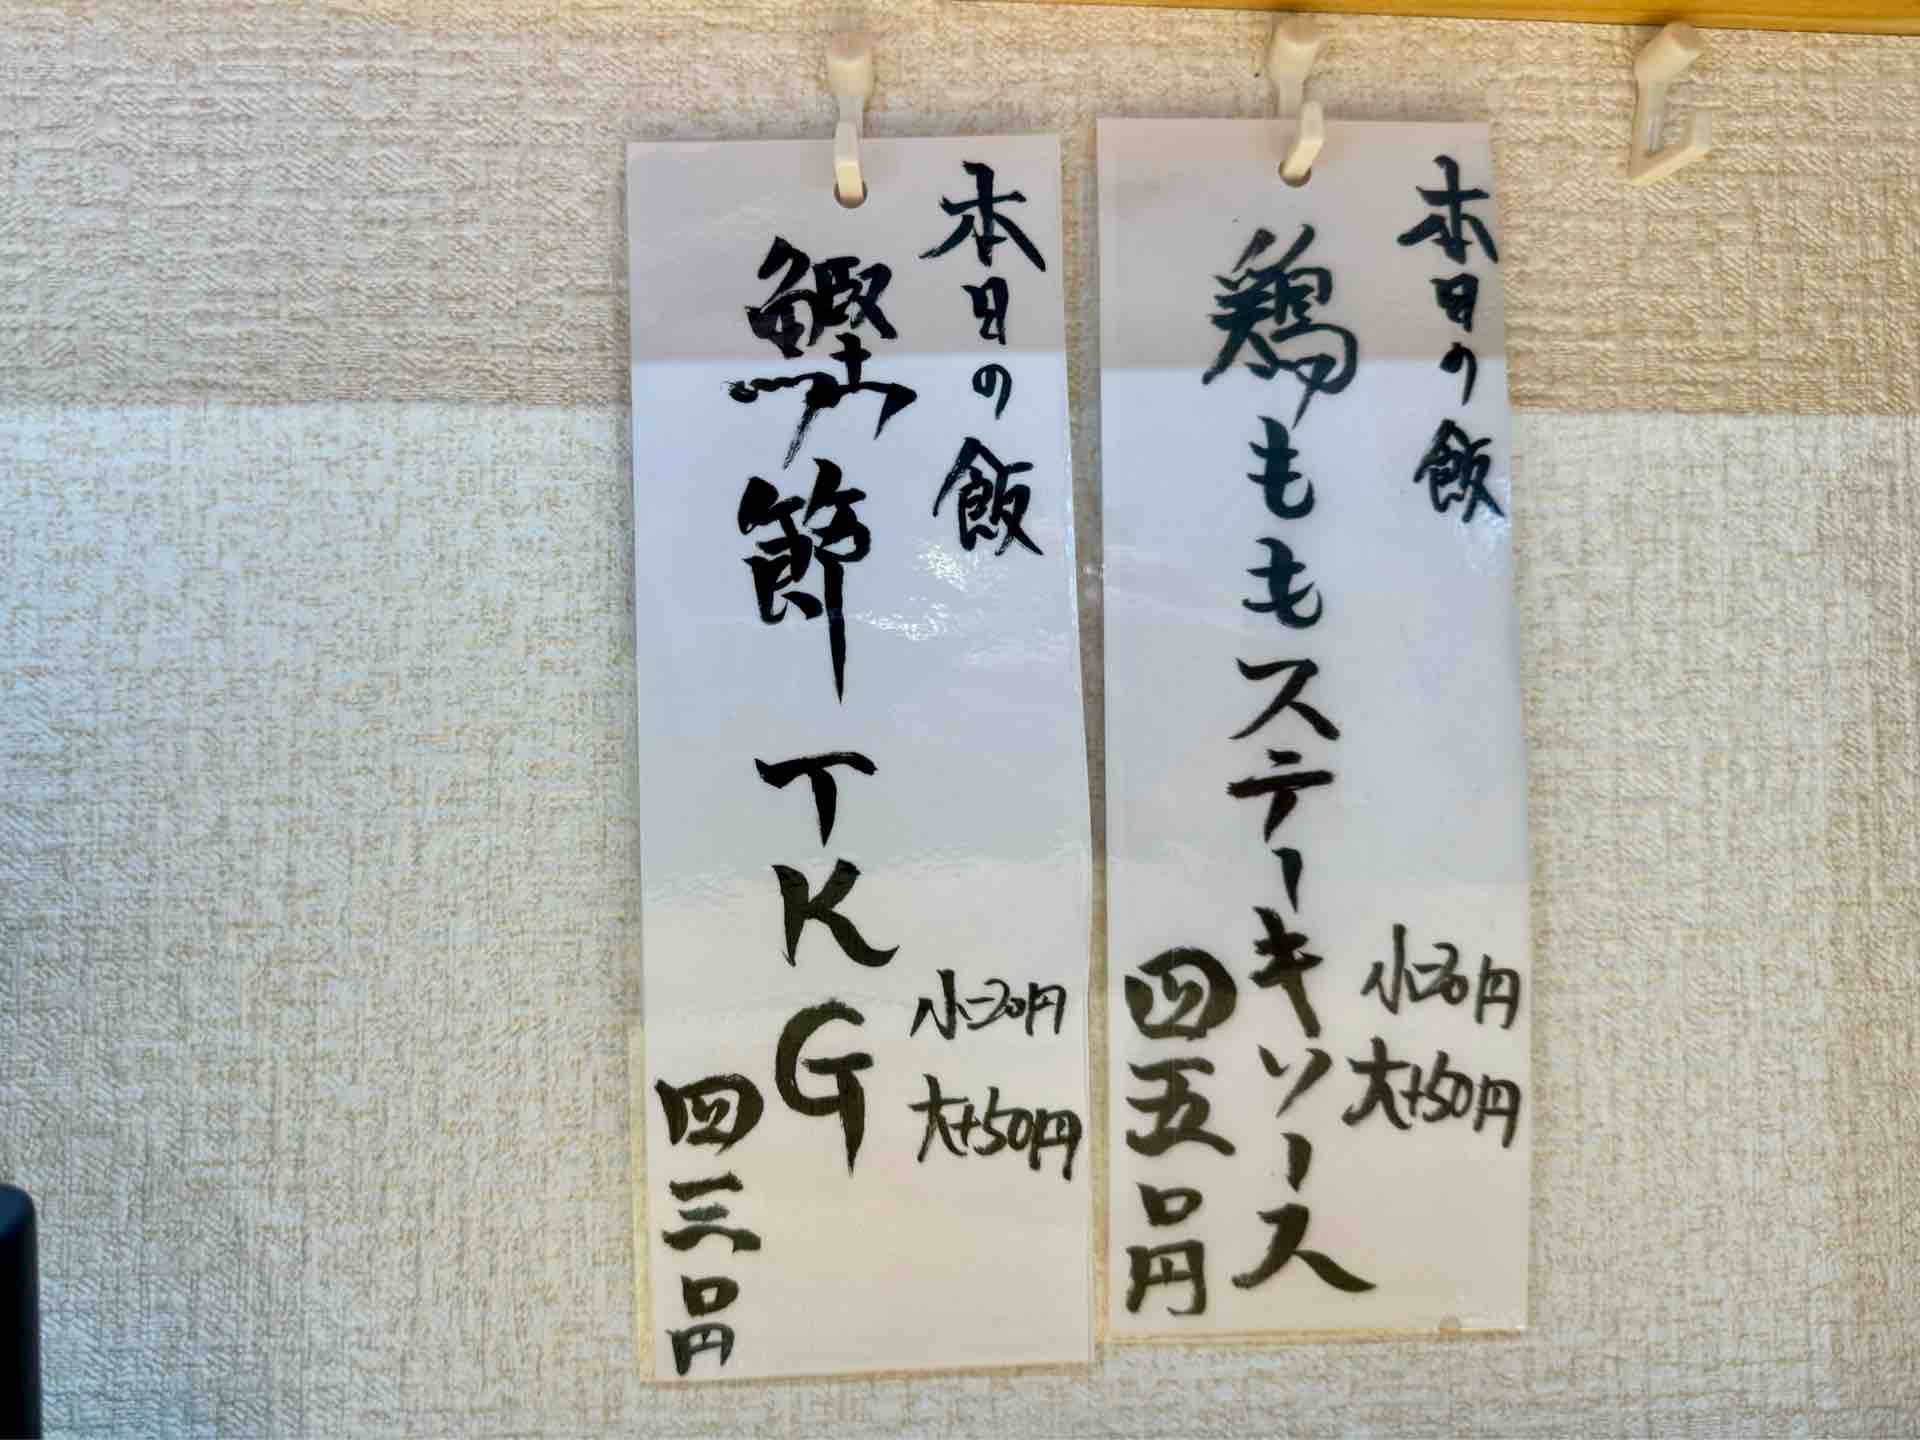 本日の飯
鶏ももステーキソース
小-30円
大+50円
四五〇円
本日の飯
鰹節TKG
小-30円
大+50円
四三〇円